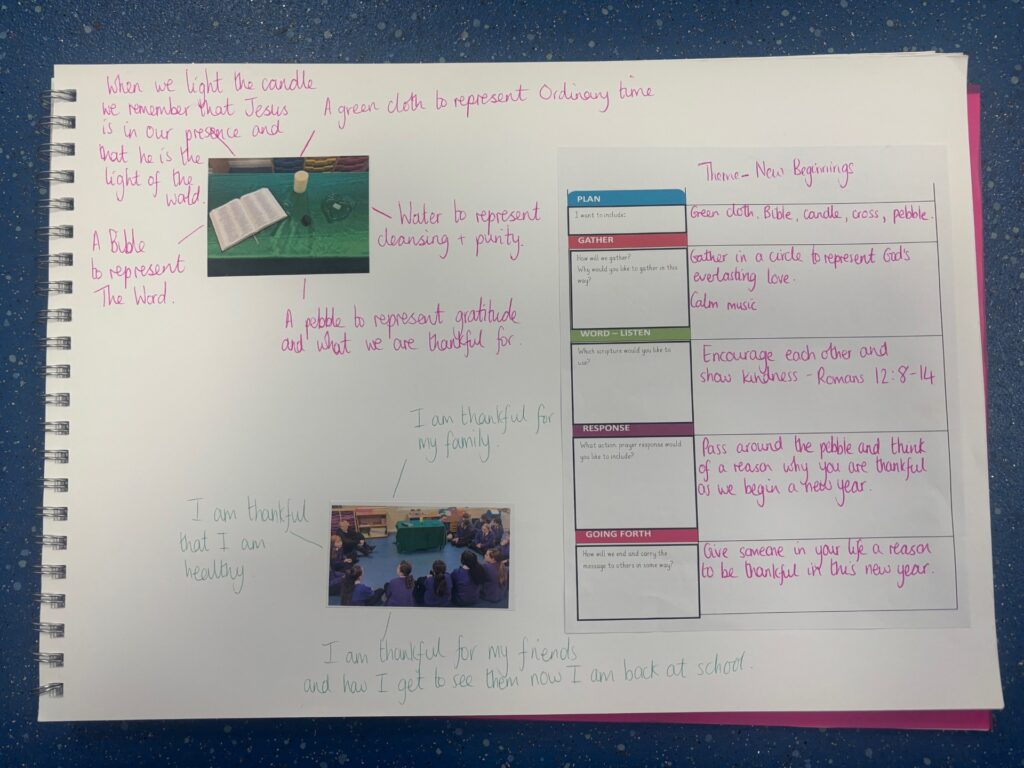 When we light the candle
we remember that Jesus
is in our presence and
that he is the
light of the
world.
A green cloth to represent Ordinary time
A Bible
to represent
The Word.
Water to represent
cleansing + purity.
A pebble to represent gratitude
and what we are thankful for.
I am thankful for
my family.
I am thankful
that I am
healthy.
I am thankful for my friends
and how I get to see them now I am back at school.
Theme - New Beginnings
PLAN
I want to include:
Green cloth, Bible, candle, cross, pebble.
GATHER
How will we gather?
Why would you like to gather in this
way?
Gather in a circle to represent God's
everlasting love.
Calm music
WORD – LISTEN
Which scripture would you like to
use?
Encourage each other and
show kindness - Romans 12:8-14
RESPONSE
What action prayer response would
you like to include?
Pass around the pebble and think
of a reason why you are thankful
as we begin a new year.
GOING FORTH
How will we end and carry the
message to others in some way?
Give someone in your life a reason
to be thankful in this new year.